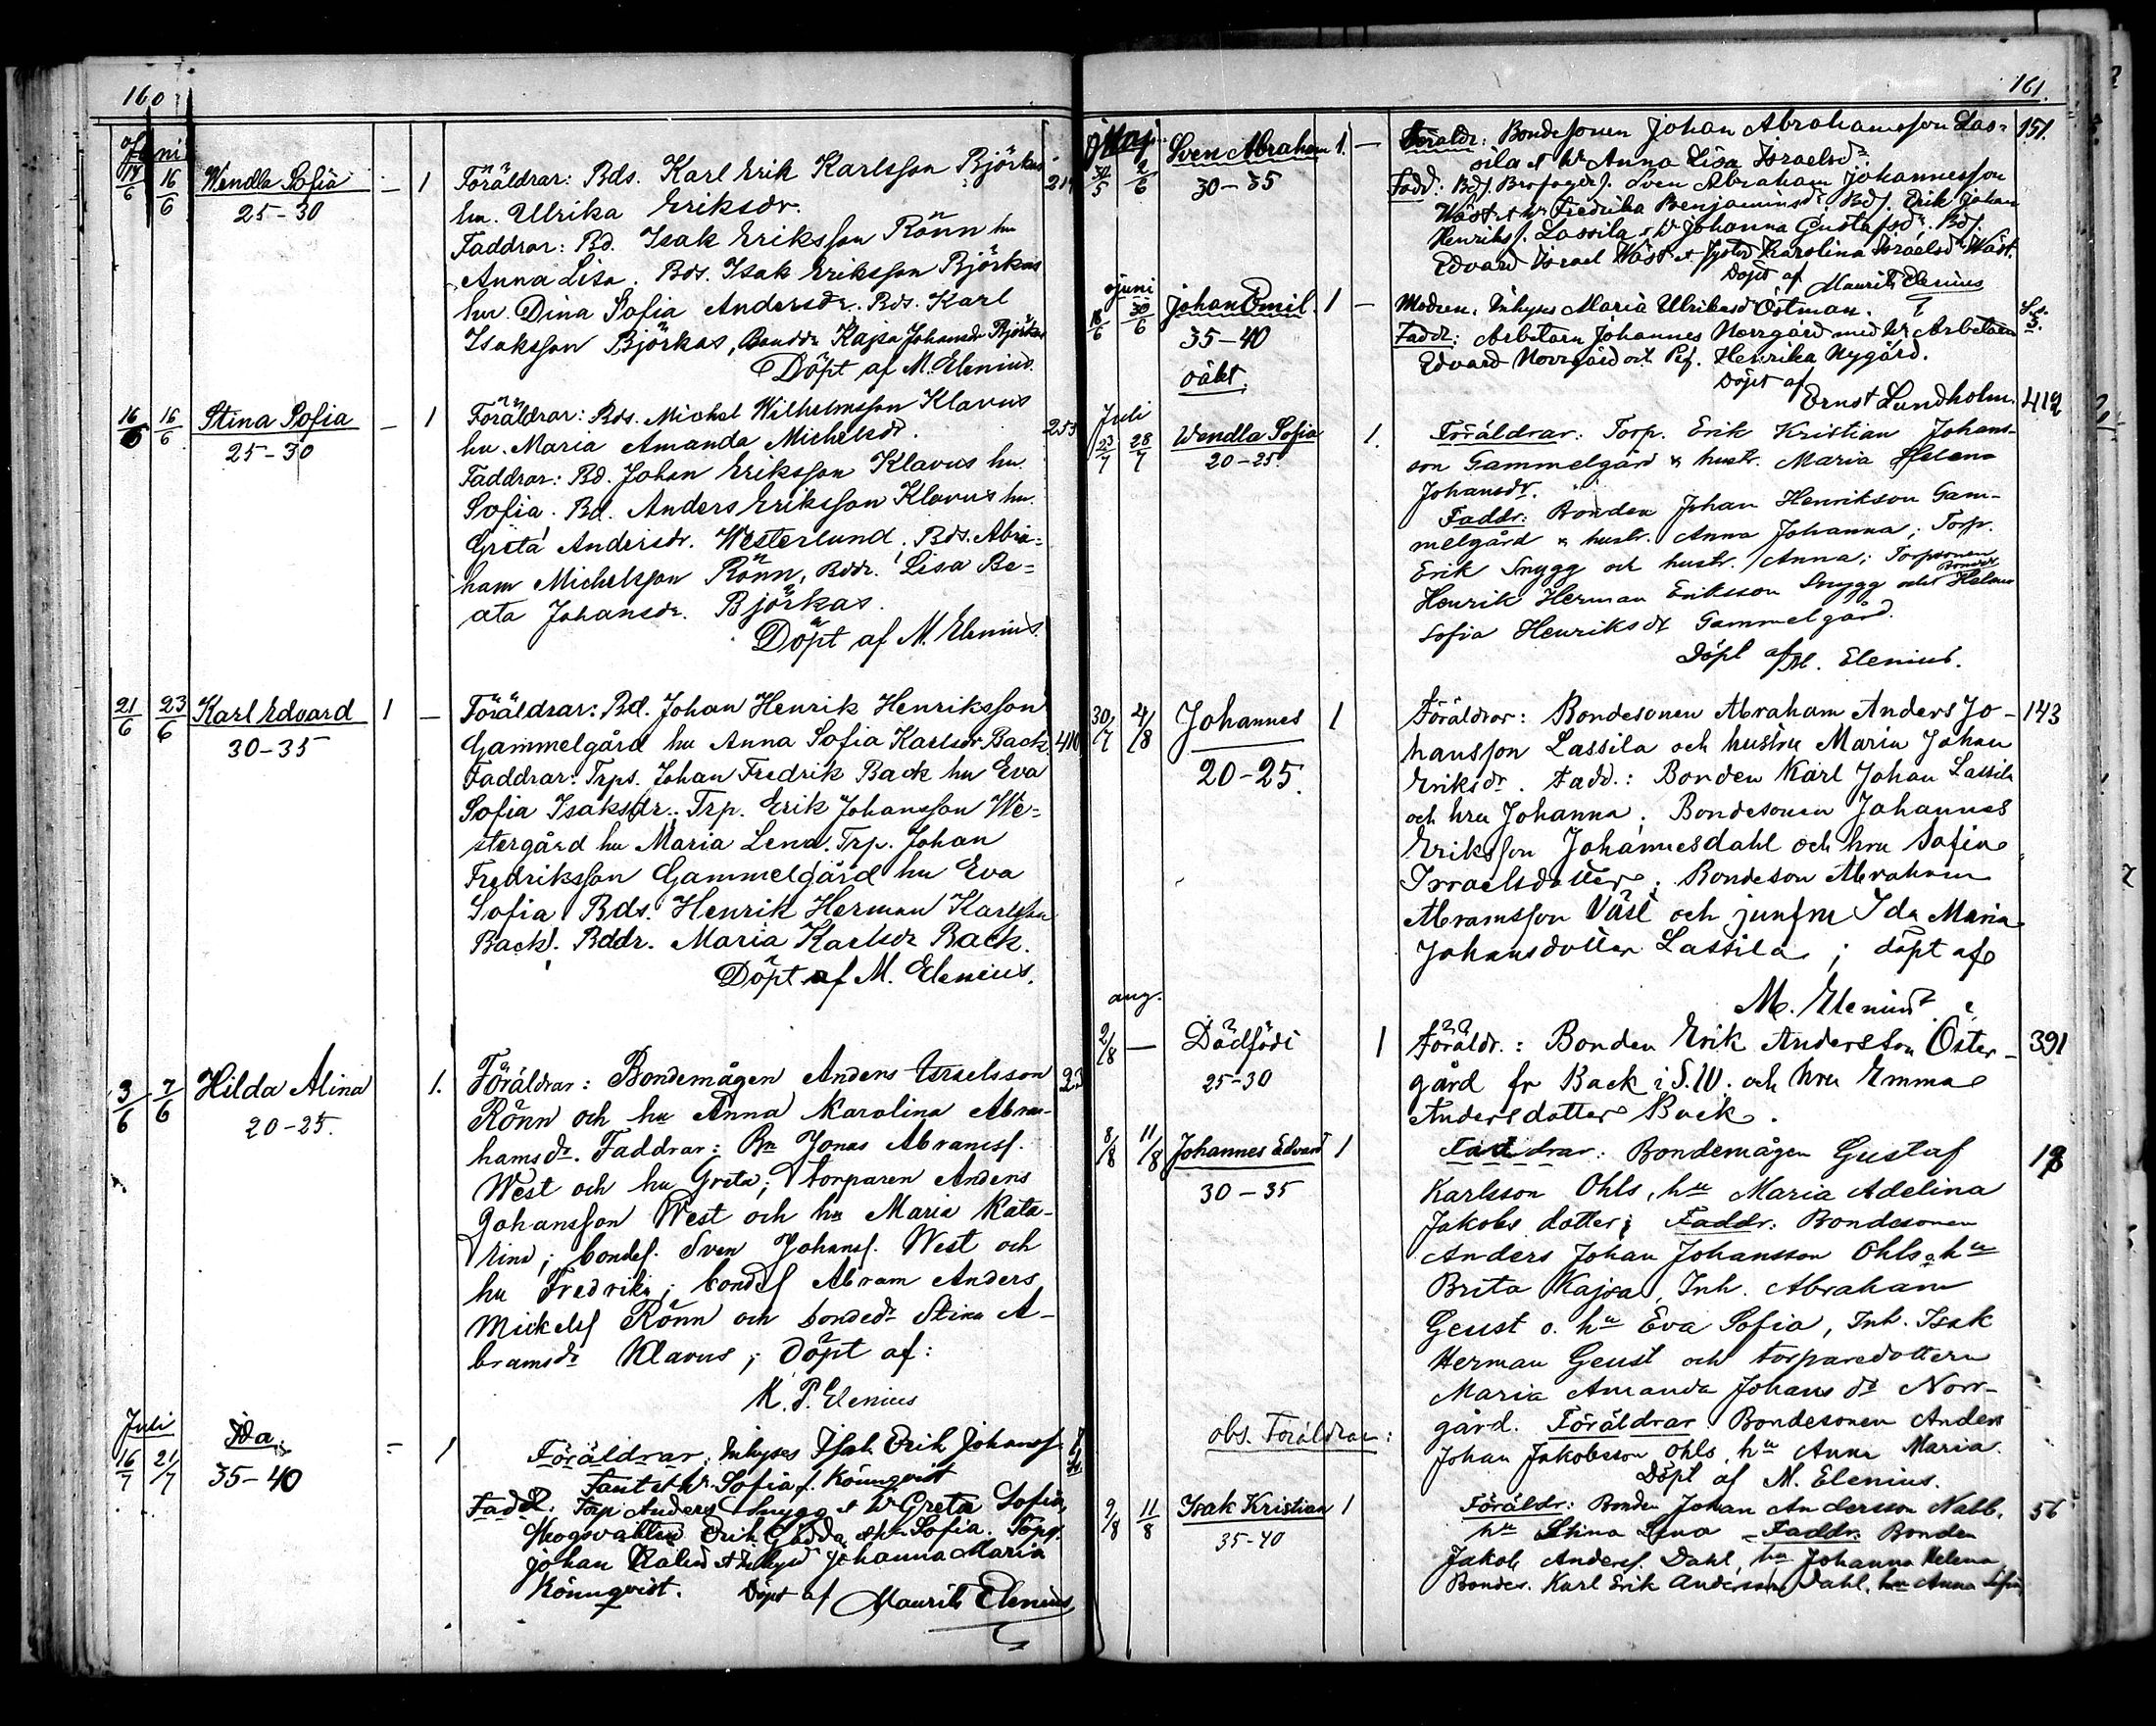 160
Juni
14/6 16/6 Wendla Sofia — 1 Föräldrar: Bds. Karl Erik Karlsson Björkas
25-30 hu. Ulrika Eriksdr.
Faddrar: Bd. Isak Eriksson Rönn hu
Anna Lisa. Bds. Isak Eriksson Björkas
hu. Dina Sofia Andersdr. Bds. Karl
Isaksson Björkas, Bonddr Kajsa Johansdr Björkas
Döpt af M. Elenius.
16/6 16/6 Stina Sofia — 1 Föräldrar: Bds. Michel Wilhelmsson Klavus
25-30 hu. Maria Amanda Michelsdr.
Faddrar: Bd. Johan Eriksson Klavus hu.
Sofia. Bd. Anders Eriksson Klavus hu.
Greta Andersdr. Westerlund. Bds. Abra=
ham Michelsson Rönn, Bddr. Lisa Be=
ata Johansdr. Björkas.
Döpt af M. Elenius.
21/6 23/6 Karl Edvard 1 — Föräldrar: Bd. Johan Henrik Henriksson
30-35 Gammelgård hu Anna Sofia Karlsdr Back 410
Faddrar: Trps. Johan Fredrik Back hu Eva
Sofia Isaksdr. Trp. Erik Johansson We=
stergård hu Maria Lena. Trp. Johan
Fredriksson Gammelgård hu Eva
Sofia Bds. Henrik Herman Karlsson
Back. Bddr. Maria Karlsdr Back.
Döpt af M. Elenius.
3/6 7/6 Hilda Alina 1. Föräldrar: Bondemågen Anders Israelsson
20-25. Rönn och hu Anna Karolina Abra-
hamsdr. Faddrar: Bn Jonas Abramss.
West och hu Greta; torparen Anders
Johansson West och hu Maria Kata-
rina; bondes. Sven Johanss. West och
hu Fredrika; bondes Abram Anders
Mickels Rönn och bondedr Stina A-
bramsdr Klavus; Döpt af:
M. P. Elenius
Juli
16/7 21/7 Ida. - 1 Föräldrar: Inhyses Isak Erik Johanss.
35-40 Faut et hr Sofia f. Könnqvist
Fadd. Torp Anders Snygg et hr Greta Sofia,
Skogsvakten Erik Gädda et hr Sofia. Torp.
Johan Johanna Maria
Könnqvist. Döpt af Maurits Elenius
161.
Maj
31/5 2/6 Sven Abraham 1. — Föräldr: Bondesonen Johan Abrahamsson Las= 151.
30-35 sila et hr Anna Lisa Israelsdr
Fadd: Sven Abraham Johannesson
Wäst et hr Fredrika Benjaminsdr Bds. Erik Johan
Henriks. Lassila et hr Johanna Gustafsdr. Bds.
Edvard Israel Wäst et Karolina Israelsdr Wäst.
Döpt af Maurits Elenius
Juni
18/6 30/6 Johan Emil. 1 — Modren. Inhyses Maria Ulrikasdr Östman.
35-40 Faddr: Arbetarn Johannes Norrgård med hr Arbetarn
oäkt. Edvard Norrgård och Pig. Henrika Nygård.
Döpt af
Ernst Lundholm.
Juli 419
23/7 28/7 Wendla Sofia 1. Föräldrar: Torp. Erik Kristian Johans-
20-25. son Gammelgård & hustr. Maria Helena
Johansdr.
Faddr: Bonden Johan Henrikson Gam-
melgård & hustr. Anna Johanna; Torp.
Erik Snygg och hustr. Anna; Torpsonen
Henrik Herman Eriksson Snygg och Bonddr Helena
Sofia Henriksdr Gammelgård.
Döpt af M. Elenius.
30/7 4/8 Johannes 1 Föräldrar: Bondesonen Abraham Anders Jo- 143
20-25. hansson Lassila och hustru Maria Johan
Eriksdr. Fadd.: Bonden Karl Johan Lassila
och hru Johanna; Bondesonen Johannes
Eriksson Johannesdahl och hru Sofia
Israelsdotter; Bondeson Abraham
Abramsson Väst och jungfru Ida Maria
Johansdotter Lassila; döpt af
M. Elenius
aug.
2/8 — Dödfödt 1 Föräldr.: Bonden Erik Andersson Öster- 391
25-30 gård fr Back i S.W. och hru Emma
Andersdotter Back.
8/8 11/8 Johannes Edvard 1 Faddrar: Bondemågen Gustaf
30-35 Karlsson Ohls, hu Maria Adelina
Jakobs dotter; Faddr: Bondesonen
Anders Johan Johansson Ohls o hu
Brita Kajsa, Inh. Abraham
Geust o. hu Eva Sofia, Inh. Isak
Herman Geust och torparedottern
Maria Amanda Johansdr Norr-
gård. Föräldrar Bondesonen Anders
obs. Föräldrar: Johan Jakobsson Ohls, hu Anna Maria.
Döpt af M. Elenius.
9/8 11/8 Isak Kristian 1 Föräldr: Bonden Johan Andersson Nabb, 56
35-40 hu Stina Lena Faddr. Bonden
Jakob Anderss. Dahl, hu Johanna Helena,
Bondes. Karl Erik Andersson Dahl, hu Anna Sofia,